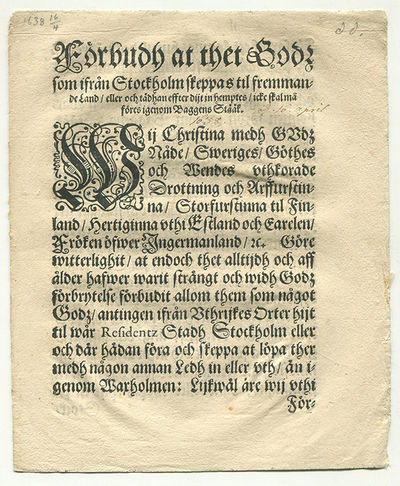 1638 16/4
Förbudh at thet Godz
som ifrån Stockholm skeppas til fremman-
de Land / eller och tådhan effter dijt in hemptes / icke skal må
föres igenom Baggens Stååk.
1638 april
Wij Christina medh GVdz
Nåde / Sweriges / Göthes
och Wendes vthkorade
Drottning och Arffurstin-
na / Storfurstinna til Fin-
land / Hertiginna vthi Estland och Carelen /
Fröken öfwer Ingermanland / ꝛc. Göre
witterlighit / at endoch thet alltijdh och aff
ålder hafwer warit strängt och widh Godz
förbrytelse förbudit allom them som något
Godz / antingen ifrån Vthrijkes Orter hijt
til wår Residentz Stadh Stockholm eller
och där hådan föra och skeppa at löpa ther
medh någon annan Ledh in eller vth / än i-
genom Waxholmen: Lijkwäl äre wij vthi
För-